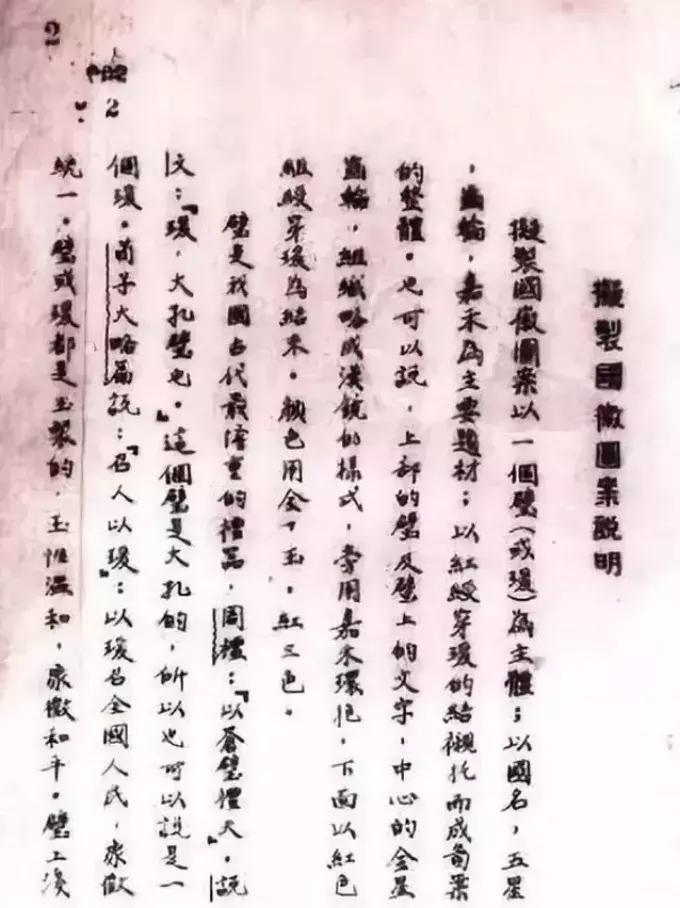 擬製國徽圖案説明
擬製國徽圖案以一個璧(或瑗)為主體;以國名,五星
,齒輪,嘉禾為主要題材;以紅綬穿瑗的結襯托而成圖案
的整體。也可以説,上部的璧及璧上的文字,中心的金星
齒輪,組織略成漢鏡的樣式,旁用嘉禾環抱,下面以紅色
組綬穿瑗為結束。顏色用金、玉、紅三色。
璧是我國古代最隆重的禮器,周禮:『以蒼璧禮天』。説
文:『瑗,大孔璧也。』這個璧是大孔的,所以也可以説是一
個瑗。荀子大略篇説:『召人以瑗』:以瑗召全國人民,象徵
統一。璧或瑗都是玉製的,玉性溫和,象徵和平。璧上淺
2
2